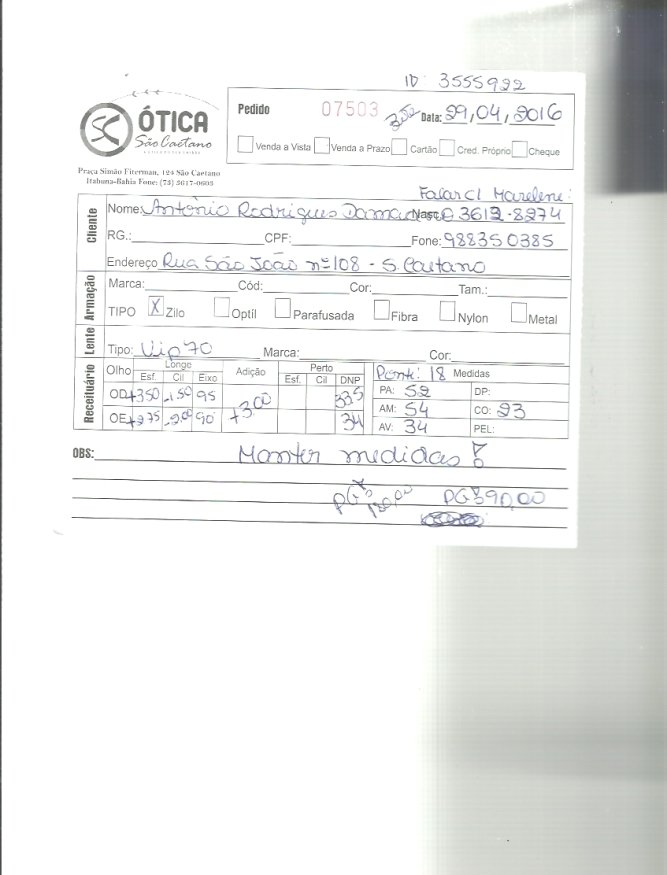 ID 3555922
ÓTICA
São Caetano
Pedido 07503 352 Data: 29,04,2016
Venda a Vista Venda a Prazo Cartão Cred. Próprio Cheque
Praça Simão Fiterman, 124 São Caetano
Itabuna-Bahia Fone: (73) 3617-0605
Falar C/ Marelene:
Cliente
Nome: Antônio Rodrigues Nasc. 3612-8274
RG.: CPF: Fone: 988350385
Endereço Rua São João nº 108 - S. Caetano
Armação
Marca: Cód: Cor: Tam.:
TIPO X Zilo Optíl Parafusada Fibra Nylon Metal
Lente
Tipo: Vip 70 Marca: Cor:
Receituário
Olho Longe Adição Perto Pont: 18 Medidas
Esf. Cil Eixo Esf. Cil DNP
OD +350 -150 95 +3,00 335
OE +275 -200 90 34
PA: 52 DP:
AM: 54 CO: 23
AV: 34 PEL:
OBS: Manter medidas !
PG 130,00 PG 390,00